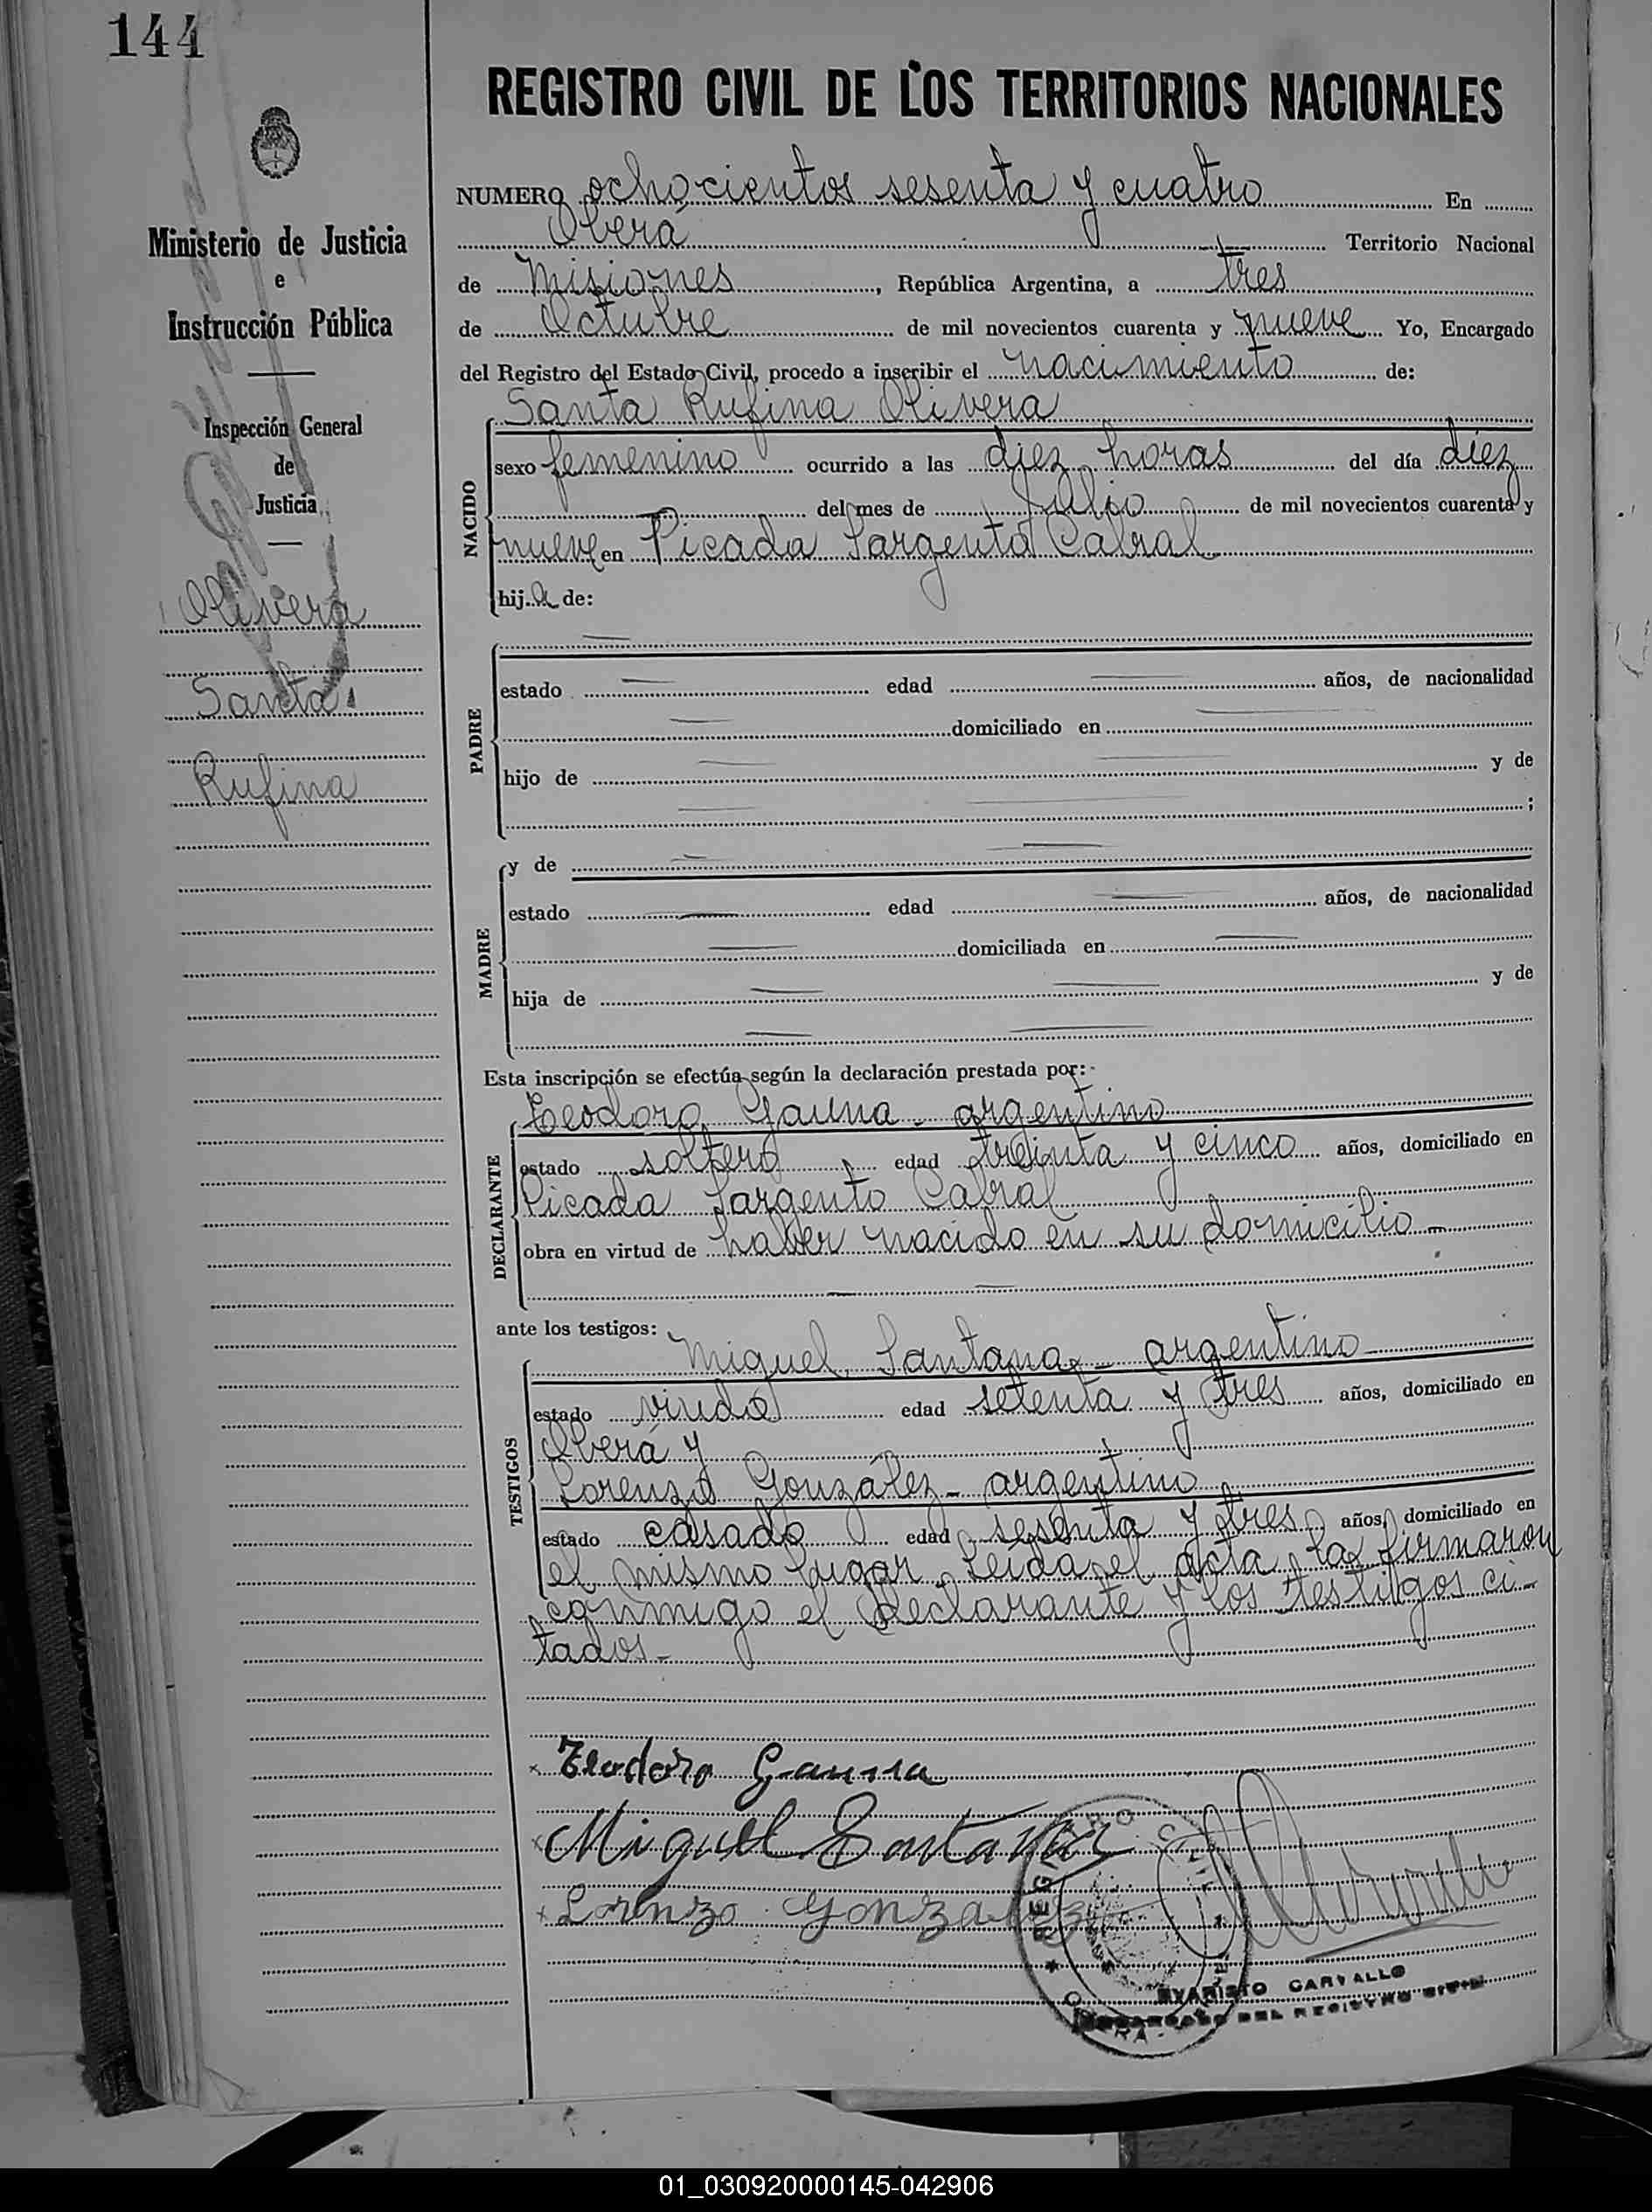 144
REGISTRO CIVIL DE LOS TERRITORIOS NACIONALES
Ministerio de Justicia
e
Instrucción Pública
Inspección General
de
Justicia
Olivera
Santa
Rufina
NUMERO ochocientos sesenta y cuatro En
Oberá Territorio Nacional
de Misiones, República Argentina, a tres
de Octubre de mil novecientos cuarenta y nueve Yo, Encargado
del Registro del Estado Civil, procedo a inscribir el nacimiento de:
Santa Rufina Olivera
NACIDO
sexo femenino ocurrido a las diez horas del día diez
del mes de Julio de mil novecientos cuarenta y
nueve en Picada Sargento Cabral
hija de:
PADRE
estado — edad — años, de nacionalidad
— domiciliado en —
hijo de — y de
— ;
MADRE
y de —
estado — edad — años, de nacionalidad
— domiciliada en —
hija de — y de
—
Esta inscripción se efectúa según la declaración prestada por:
DECLARANTE
Teodoro Gauna - argentino
estado soltero edad treinta y cinco años, domiciliado en
Picada Sargento Cabral
obra en virtud de haber nacido en su domicilio —
ante los testigos:
TESTIGOS
Miguel Santana - argentino
estado viudo edad setenta y tres años, domiciliado en
Oberá y
Lorenzo González - argentino
estado casado edad sesenta y tres años, domiciliado en
el mismo lugar. Leída el acta, la firmaron
conmigo el declarante y los testigos ci-
tados -
x Teodoro Gauna
x Miguel Santana
x Lorenzo Gonzalez
REGISTRO CIVIL
OBERA
EVARISTO CARVALLO
ENCARGADO DEL REGISTRO CIVIL
01_030920000145-042906